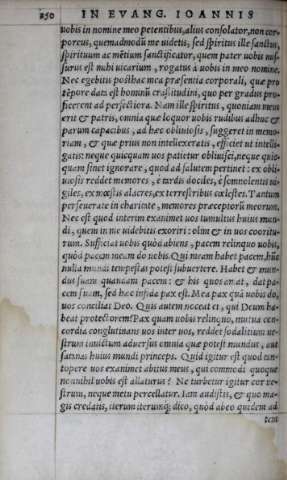 250 IN EVANG. IOANNIS
uobis in nomine meo petentibus, alius consolator, non cor-
poreus, quemadmodũ me uidetis, sed spiritus ille sanctus,
spirituum ac mẽtium sanctificator, quem pater uobis mis-
surus est mihi uicarium, rogatus à uobis in meo nomine.
Nec egebitis posthac mea præsentia corporali, quæ pro
tẽpore data est hominũ crassitudini, quo per gradus pro-
ficerent ad perfectiora. Nam ille spiritus, quoniam meus
erit & patris, omnia quæ loquor uobis rudibus adhuc &
parum capacibus, ad hæc obliuiosis, suggeret in memo-
riam, & quæ prius non intellexeratis, efficiet ut intelli-
gatis: neque quicquam uos patietur obliuisci, neque quic-
quam sinet ignorare, quod ad salutem pertinet: ex obli-
uiosis reddet memores, è tardis dociles, è somnolentis ui-
giles, ex mœstis alacres, ex terrestribus cælestes. Tantum
perseuerate in charitate, memores præceptorũ meorum.
Nec est quod interim exanimet uos tumultus huius mun-
di, quem in me uidebitis exoriri: olim & in uos cooritu-
rum. Sufficiat uobis quòd abiens, pacem relinquo uobis,
quòd pacem meam do uobis. Qui meam habet pacem, hũc
nulla mundi tempestas potest subuertere. Habet & mun-
dus suam quandam pacem: & his quos amat, dat pa-
cem suam, sed hæc infida pax est. Mea pax quã uobis do,
uos conciliat Deo. Quis autem noceat ei, qui Deum ha-
beat protectorem? Pax quam uobis relinquo, mutua con-
cordia conglutinans uos inter uos, reddet sodalitium ue-
strum inuictum aduersus omnia quæ potest mundus, aut
satanas huius mundi princeps. Quid igitur est quod tan-
topere uos exanimet abitus meus, qui commodi quoque
nonnihil uobis est allaturus? Ne turbetur igitur cor ue-
strum, neque metu percellatur. Iam audistis, & quo ma-
gis credatis, iterum iterumq; dico, quòd abeo quidem ad
tem